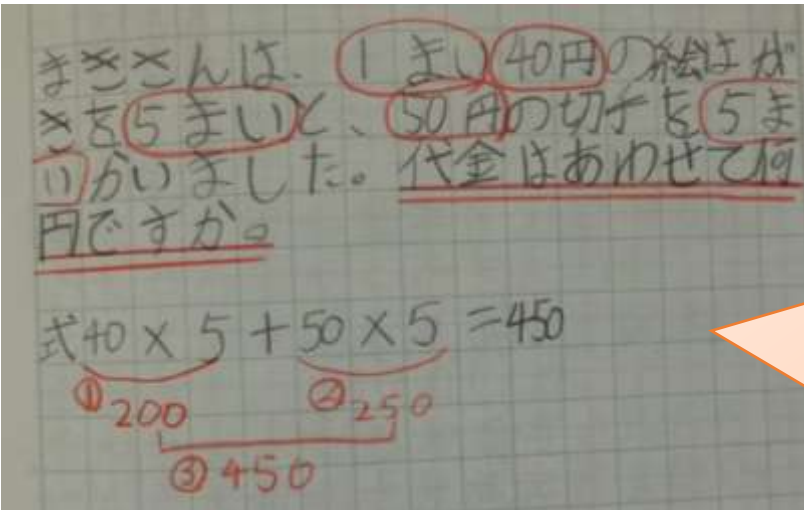 まきさんは、1まい40円の絵はが
きを5まいと、50円の切手を5ま
いかいました。代金はあわせて何
円ですか。
式40×5+50×5=450
①200 ②250
③450